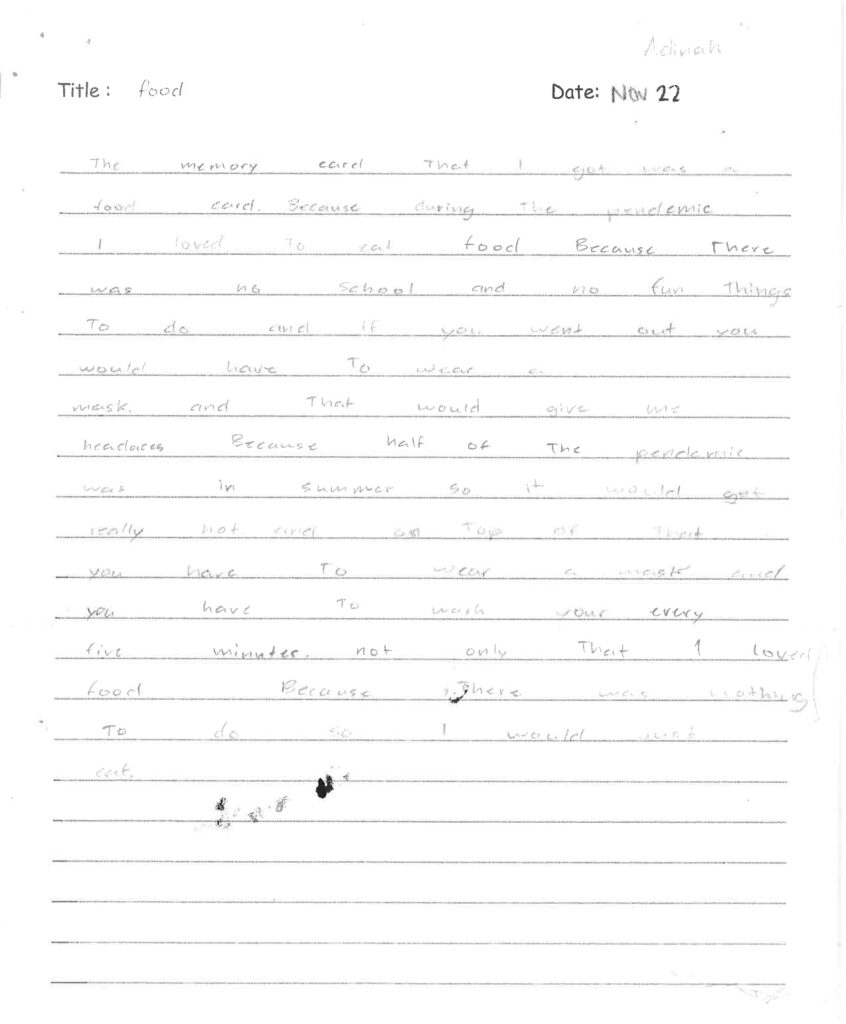 Adinah
Title : food
Date: Nov 22
The memory card That I got was a
food card. Because during The pendemic
I loved To eat food Because There
was no school and no fun Things
To do and if you went out you
would have To wear a
mask. and That would give me
headaces Because half of The pendemic
was in summer so it would get
really hot and on Top of That
you have To wear a mask and
you have To wash your every
five minutes. not only That I loved
food Because There was nothing
To do so I would just
eat.